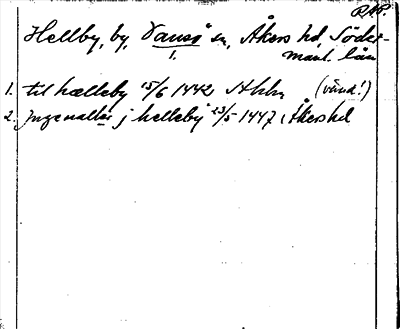 RAP.
Hellby, by, Vansö sn, Åkers hd, Söder-
1. manl. län
1. til hælleby 15/6 1442 Sthlm (vänd!)
2. Jngenallær j helleby 23/5 1447 i Åkers hd